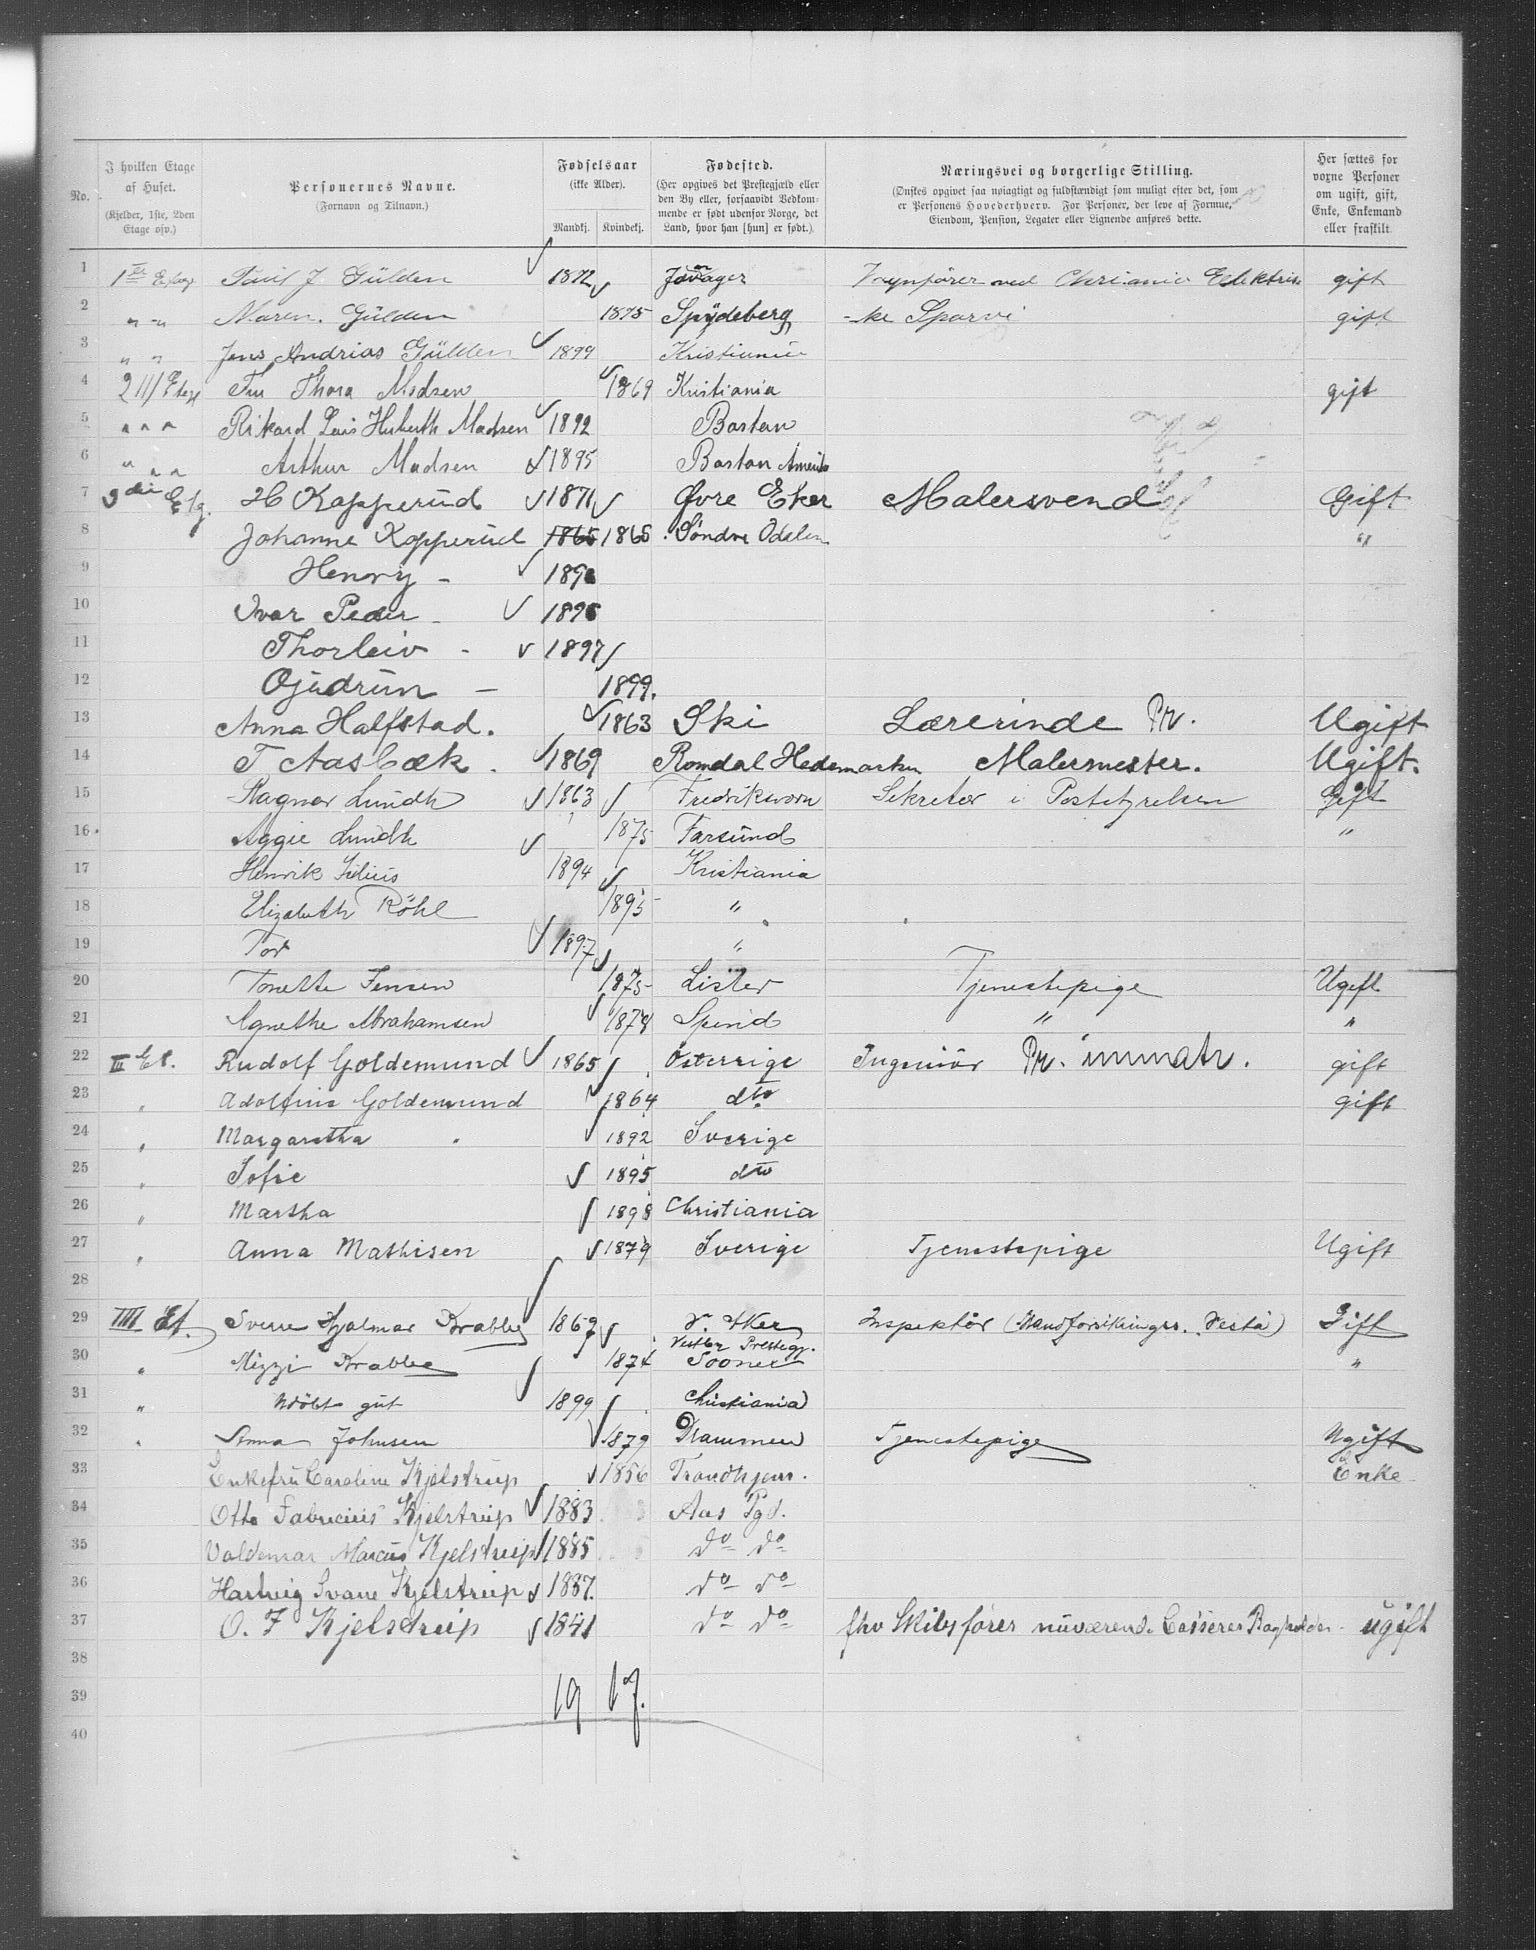 No.
I hvilken Etage af Huset. (Kjelder, 1ste, 2den Etage osv.)
Personernes Navne. (Fornavn og Tilnavn.)
Fødselsaar (ikke Alder). Mandkj. Kvindekj.
Fødested. (Her opgives det Prestegjæld eller den By eller, forsaavidt Vedkommende er født udenfor Norge, det Land, hvor han [hun] er født.)
Næringsvei og borgerlige Stilling. (Ønskes opgivet saa nøiagtigt og fuldstændigt som muligt efter det, som er Personens Hovederhverv. For Personer, der leve af Formue, Eiendom, Pension, Legater eller Lignende anføres dette.
Her sættes for voxne Personer om ugift, gift, Enke, Enkemand eller fraskilt
1 1ste Etage J. Gülden 1872 Vognfører ved Christiania Elektris gift
2 " " Maren Gülden 1875 Spydeberg -ke Sporvei gift
3 " " Jens Andrias Gülden 1899 Kristiania
4 2 II/Etage Fru Thora Madsen 1869 Kristiania gift
5 " " " Rikard Luis Huberth Madsen 1892 Boston
6 " " " Arthur Madsen 1895 Boston Amerika
7 3die Etg. H Kopperud 1871 Øvre Eker Malersvend Gift
8 Johanne Kopperud 1865 1865 Søndre Odalen "
9 Henry -
10 Ivar Peder -
11 Thorleiv - 1897
12 Gjudrun - 1899.
13 Anna Halfstad. 1863 Ski Lærerinde Pr. Ugift
14 T Aasbæk. 1869 Romdal Hedemarken Malermester. Ugift.
15 Ragnar Lundh 1863 Fredriksværn Sekretær i Poststyrelsen Gift
16 Aggie Lundh 1875 Farsund "
17 Henrik Julius 1894 Kristiania
18 Elizabeth Röhl 1895 "
19 Tor 1897 "
20 Tonette Jensen 1875 Lister Tjenestepige Ugift
21 Agnethe Abrahamsen 1878 Spind " "
22 III Et. Rudolf Goldemund 1865 Østerrige Ingeniør Pr. immatr. gift
23 " Adolfine Goldemund 1864 dto gift
24 " Margaretha " 1892 Sverige
25 " Sofie 1895 dto
26 " Martha 1898 Christiania
27 " Anna Mathisen 1879 Sverige Tjenestepige Ugift
28
29 IIII Et. Sverre Hjalmar Krabbe 1869 V. Aker Inspektør (Mandforsikringss. Vesta) Gift
30 " Mizzi Krabbe 1874 "
31 " Udöbt gut 1899 Christiania
32 " Anna Johnsen 1879 Drammen Tjenestepige Ugift
33 Enkefru Caroline Kjelstrup 1856 Trondhjem. Enke
34 Otto Fabricius Kjelstrup 1883 Aas Pgd.
35 Valdemar Marcus Kjelstrup 1885 do do
36 Hartvig Svane Kjelstrup 1887. do do
37 O. F Kjelstrup 1841 do do fhv Skibsfører nuværende Casserer Bogholder ugift
38
39 19 17.
40